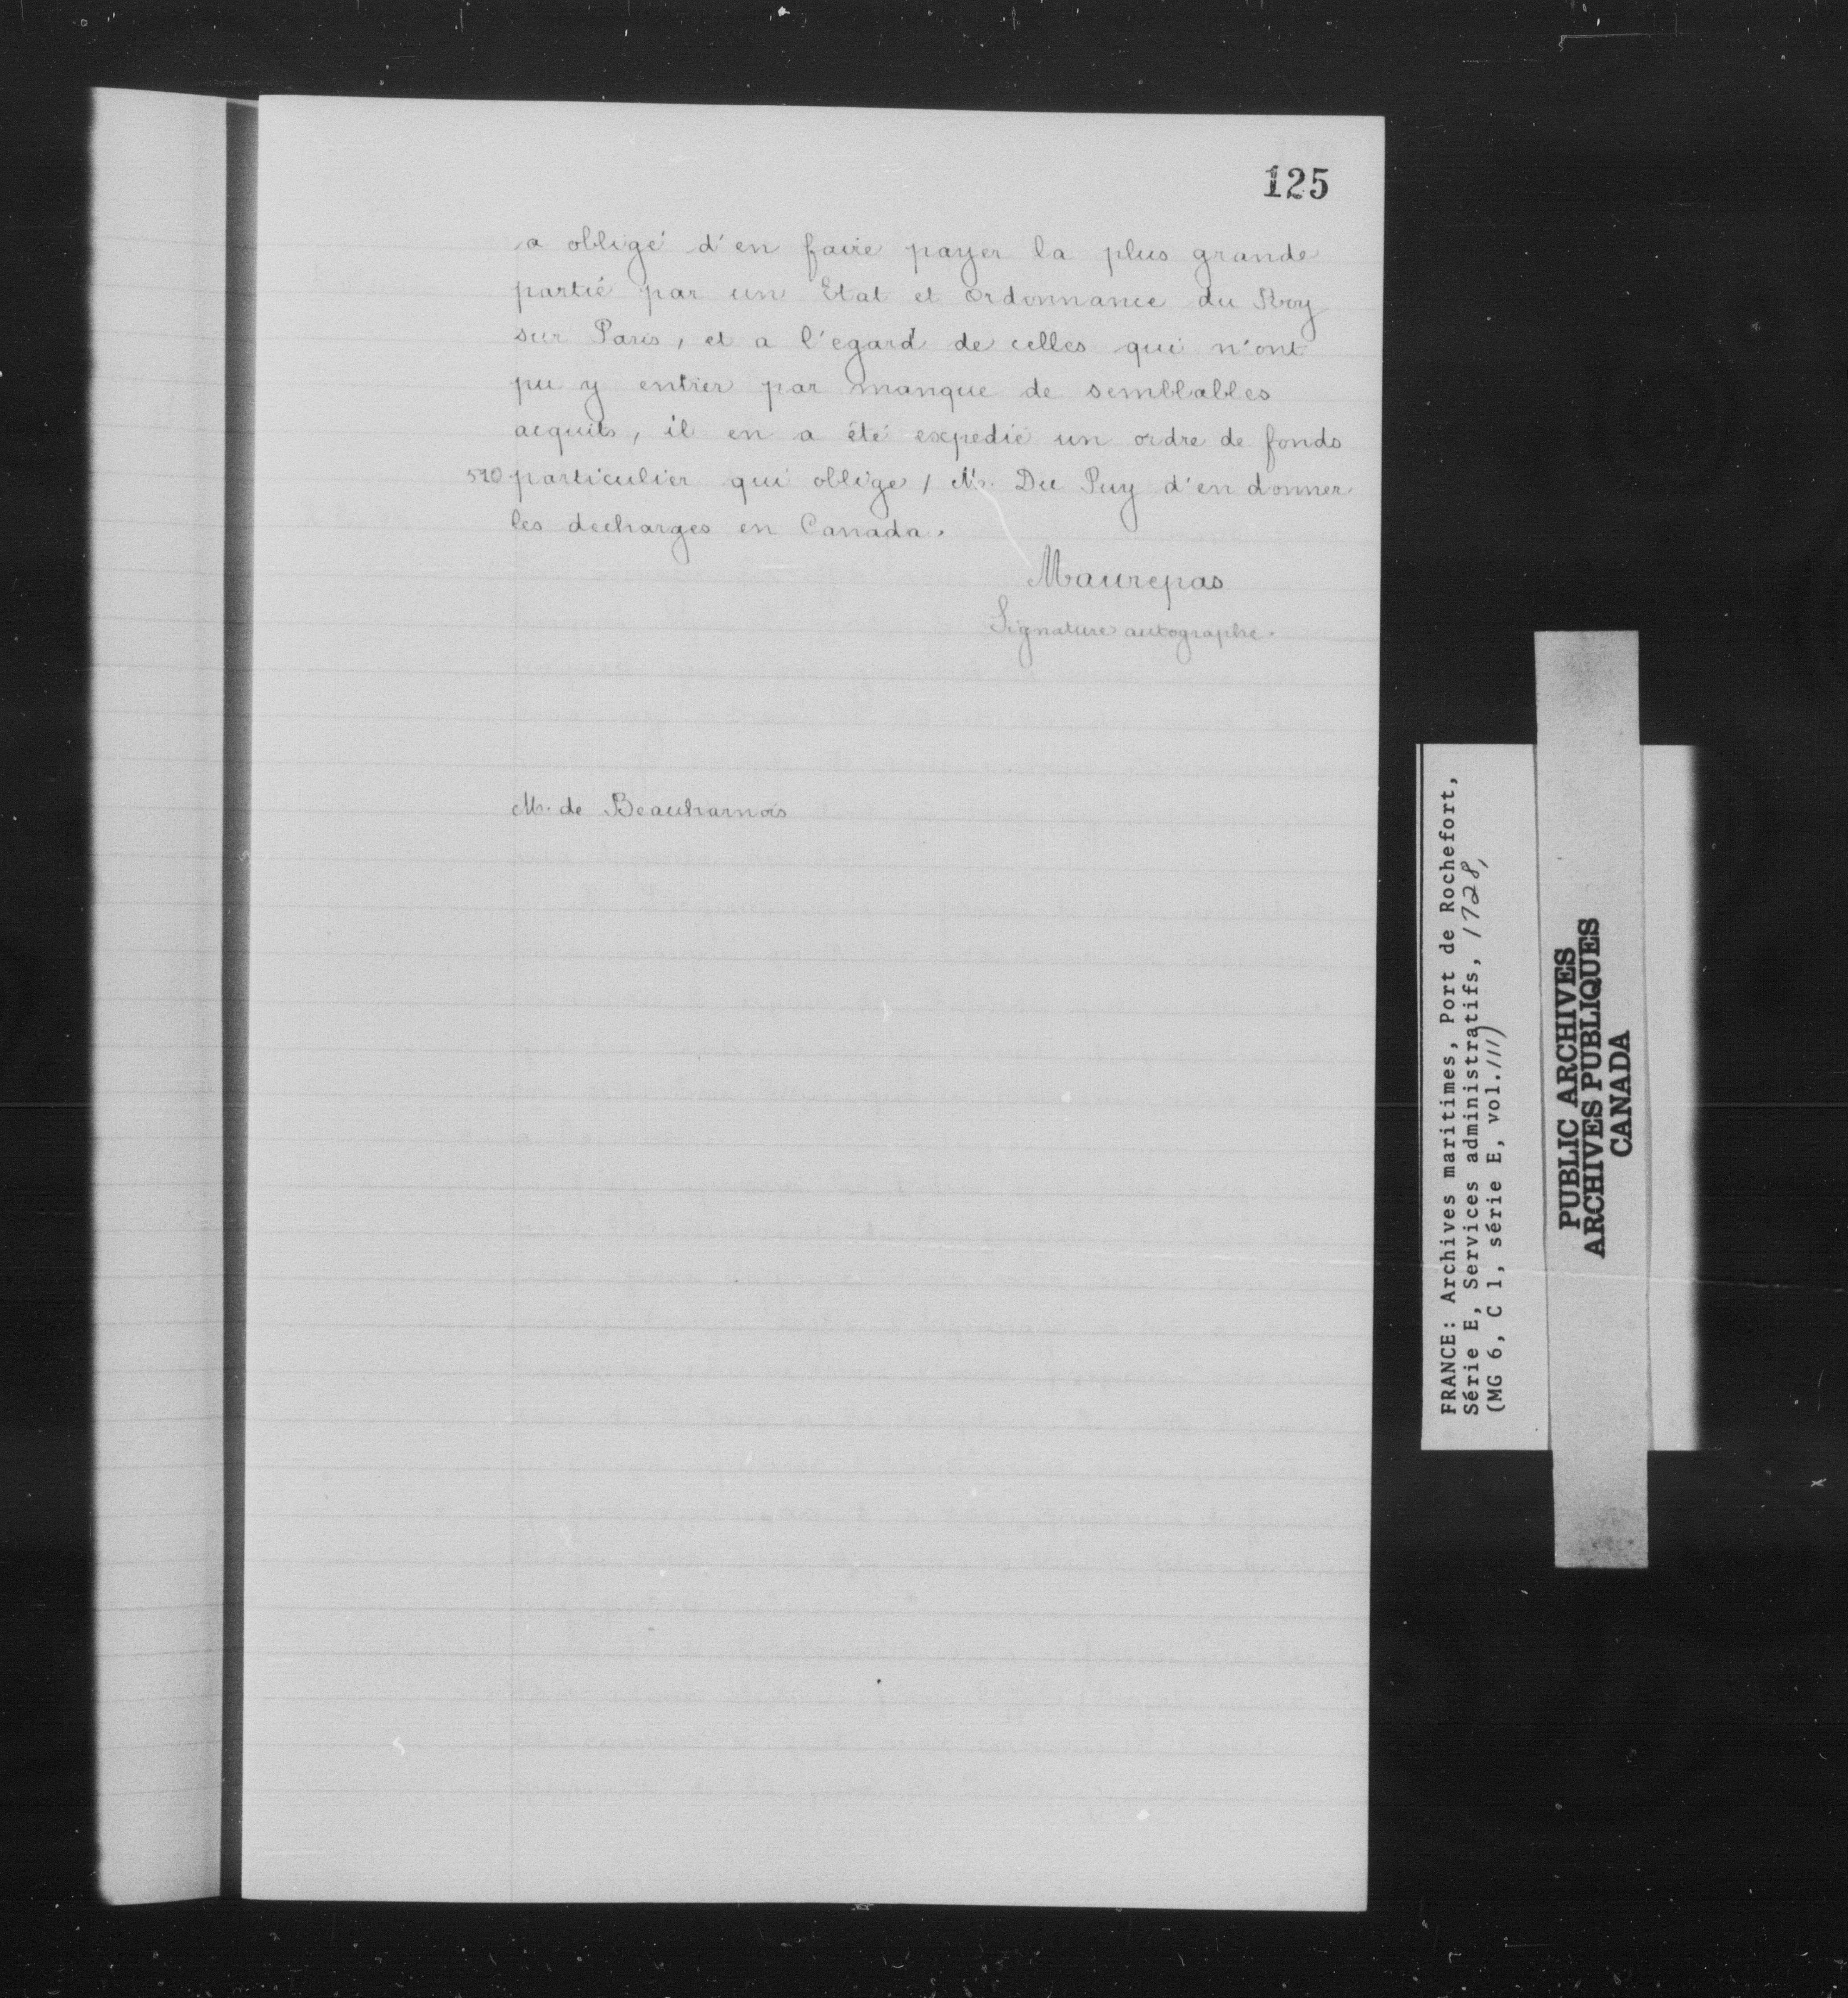 125
a obligé d'en faire payer la plus grande
partié par un Etat et ordonnance du Roy
sur Paris, et a l'egard de celles qui n'ont
pu y entrer par manque de semblables
acquits, il en a été expedié un ordre de fonds
510 particulier qui oblige / Mr. Du Puy d'en donner
les decharges en Canada.
Maurepas
Signature autographe.
Mr. de Beauharnois
FRANCE: Archives maritimes, Port de Rochefort,
Série E, Services administratifs, 1728,
(MG 6, C 1, série E, vol. 111)
PUBLIC ARCHIVES
ARCHIVES PUBLIQUES
CANADA